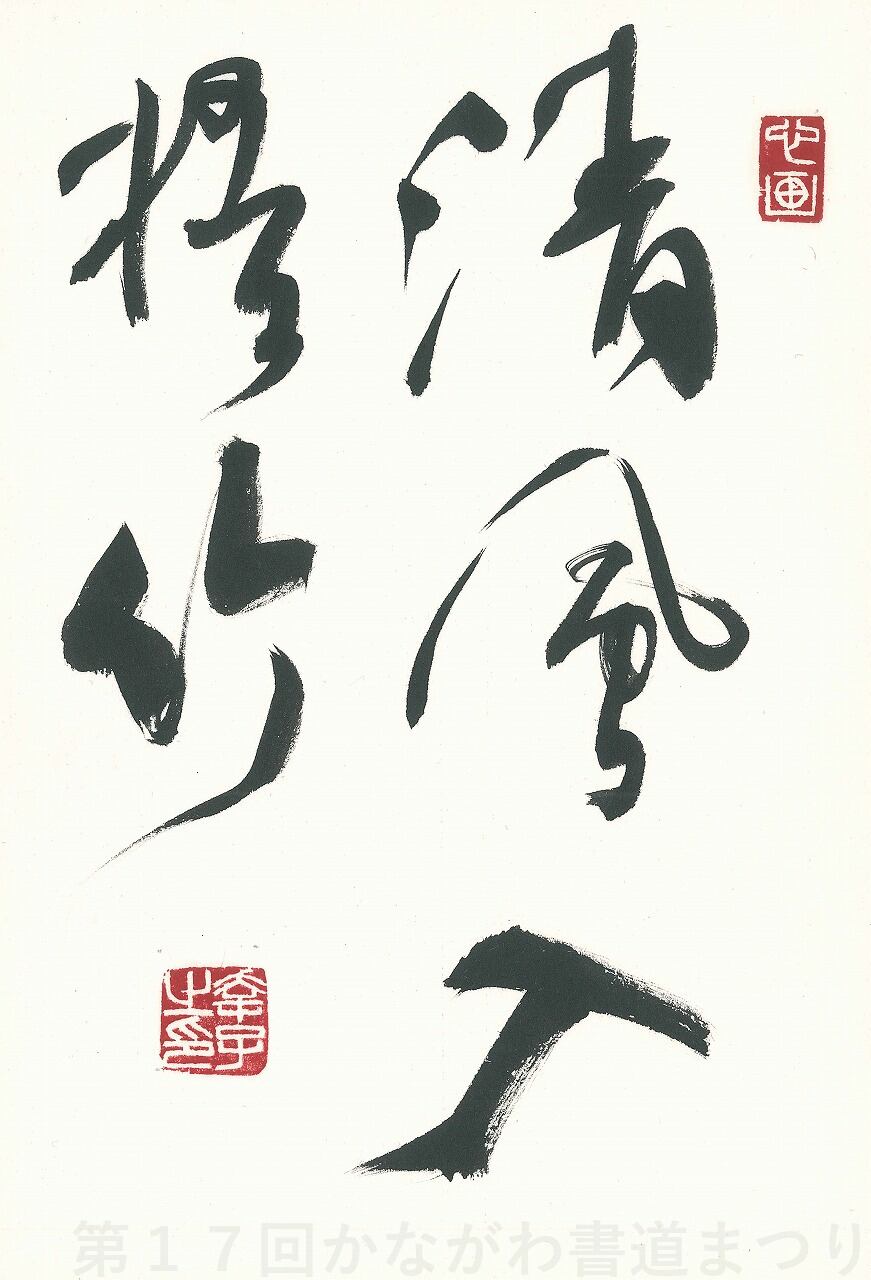 心画
清風入
梧竹
第１７回かながわ書道まつり